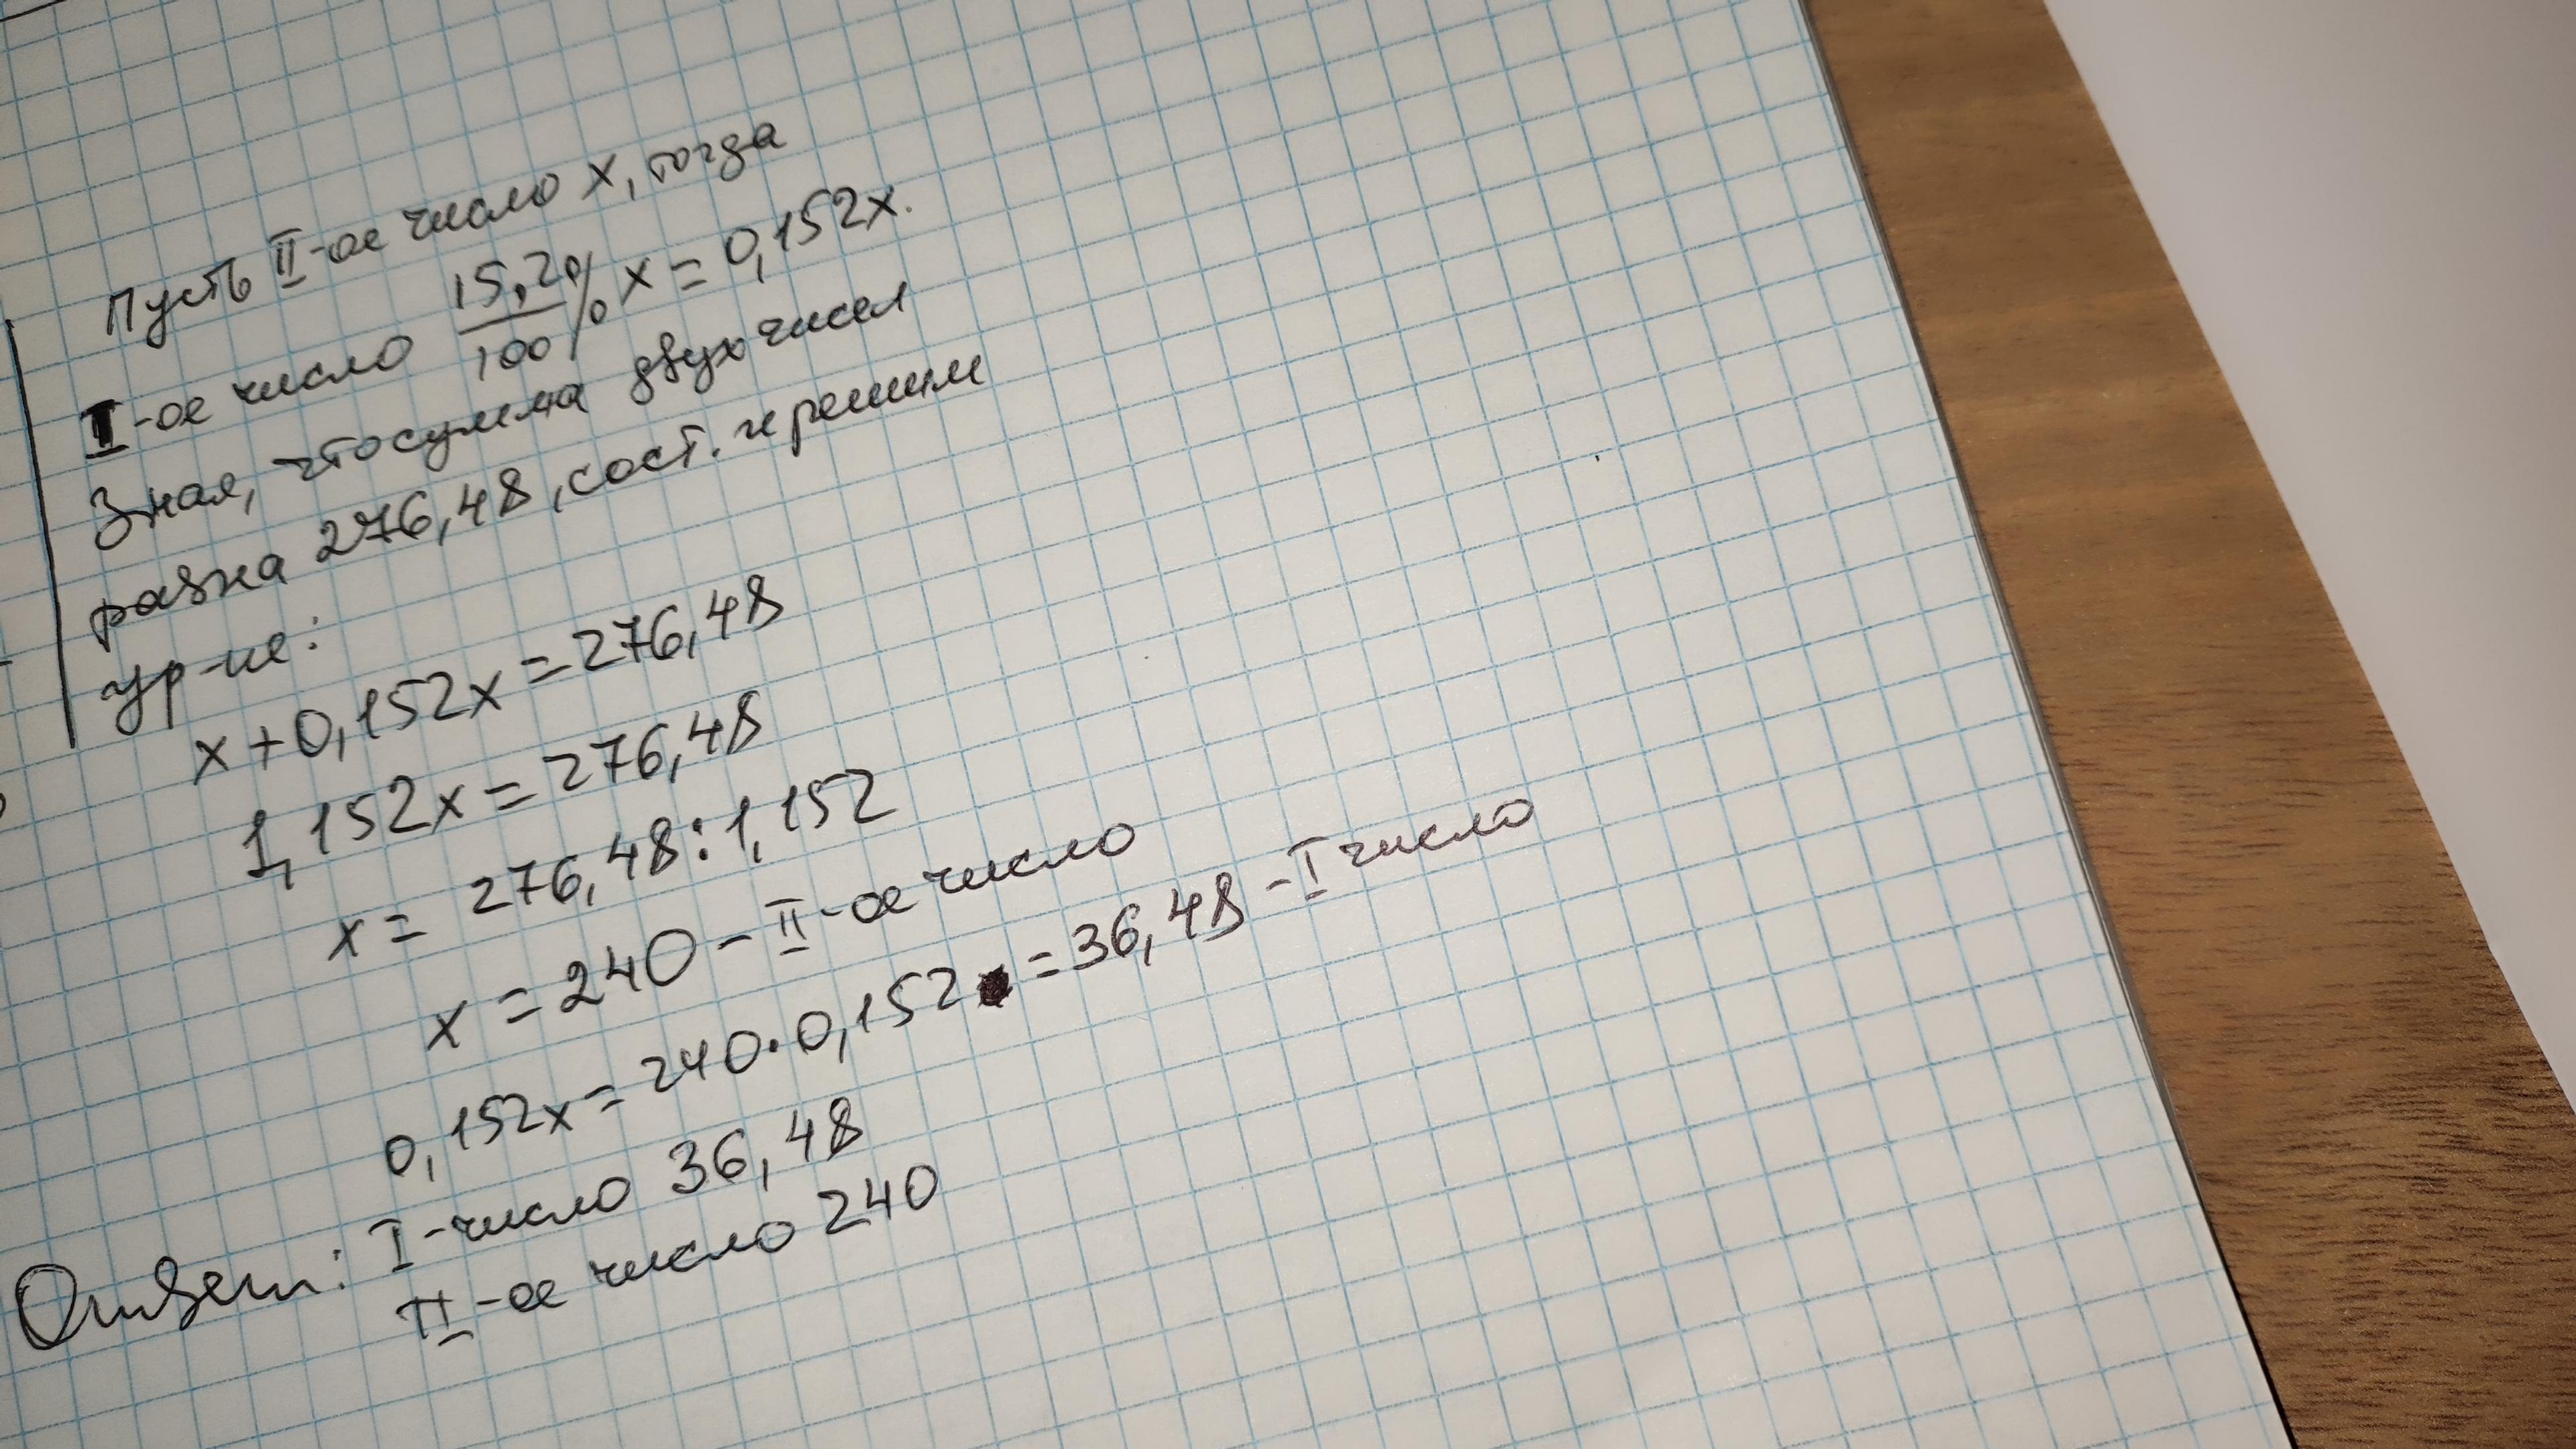 Пусть II-ое число x, тогда
I-ое число 15,2%/100% x = 0,152x.
Зная, что сумма двух чисел
равна 276,48, сост. и решим
ур-ие:
x + 0,152x = 276,48
1,152x = 276,48
x = 276,48 : 1,152
x = 240 - II-ое число
0,152x = 240 · 0,152 = 36,48 - I число
Ответ: I-число 36,48
II-ое число 240